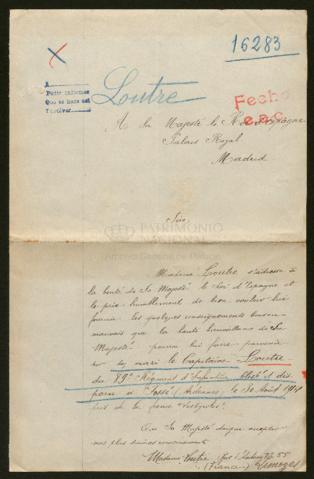 16283
A
Loutre
Fecho
A Sa Majesté le Roi d'Espagne
Palais Royal
Madrid
Sire,
PATRIMONIO
NACIONAL
Madame Loutre s'adresse à
la bonté de Sa Majesté le Roi d'Espagne et
le prie humblement de bien vouloir lui
fournir les quelques renseignements
que la haute bienveillance de Sa
Majesté pourra lui faire parvenir
sur son mari le Capitaine Loutre
du 89e Régiment d'Infanterie, blessé et dis
paru à Fossé (Ardennes) le 31 Août 1914
près de la ferme
Que Sa Majesté daigne accepter
mes plus sincères remerciements
Madame Loutre 55
(France) Limoges